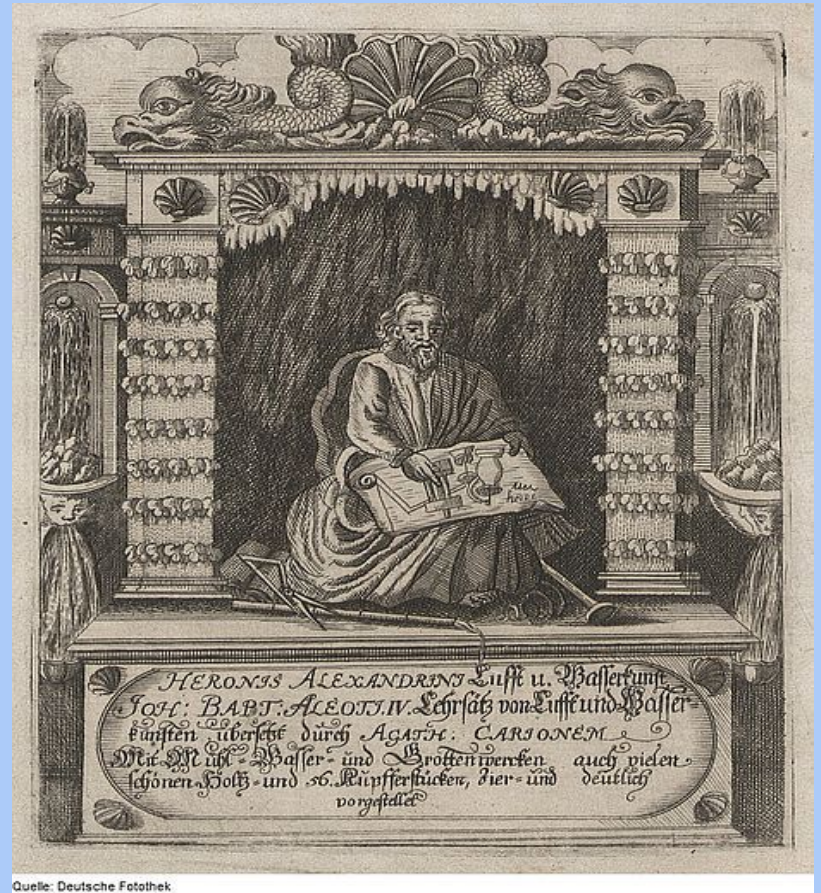 HERONIS ALEXANDRINI Lufft u. Wasserkunst,
JOH: BABT: ALEOTI. IV. Lehrsätz von Lufft und Wasser-
künsten übersetzt durch AGATH: CARIONEM
Mit Mühl-Wasser- und Grottenwercken auch vielen
schönen Holtz- und 56. Kupfferstücken, Zier- und deutlich
vorgestellet
Quelle: Deutsche Fotothek